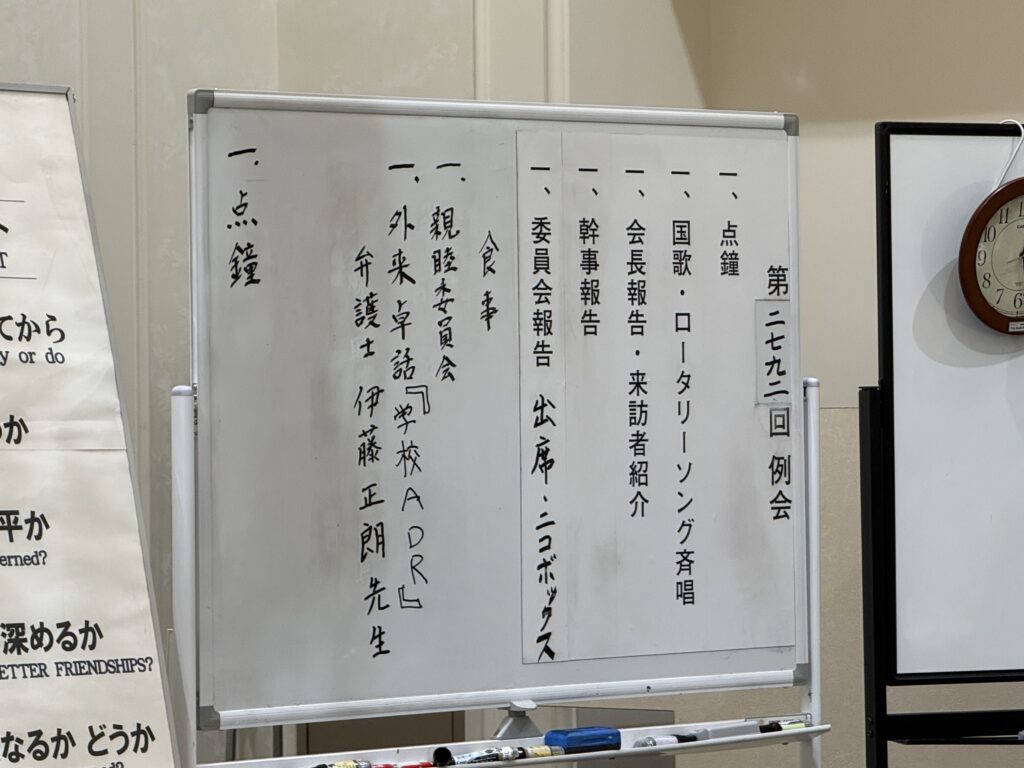 第二七九二回 例会
一、点鐘
一、国歌・ロータリーソング斉唱
一、会長報告・来訪者紹介
一、幹事報告
一、委員会報告 出席・ニコボックス
食事
一、親睦委員会
一、外来卓話『学校ADR』
弁護士 伊藤正朗先生
一、点鐘
てから
y or do
か
平か
erned?
深めるか
ETTER FRIENDSHIPS?
なるか どうか
11
10
9
8
7
6